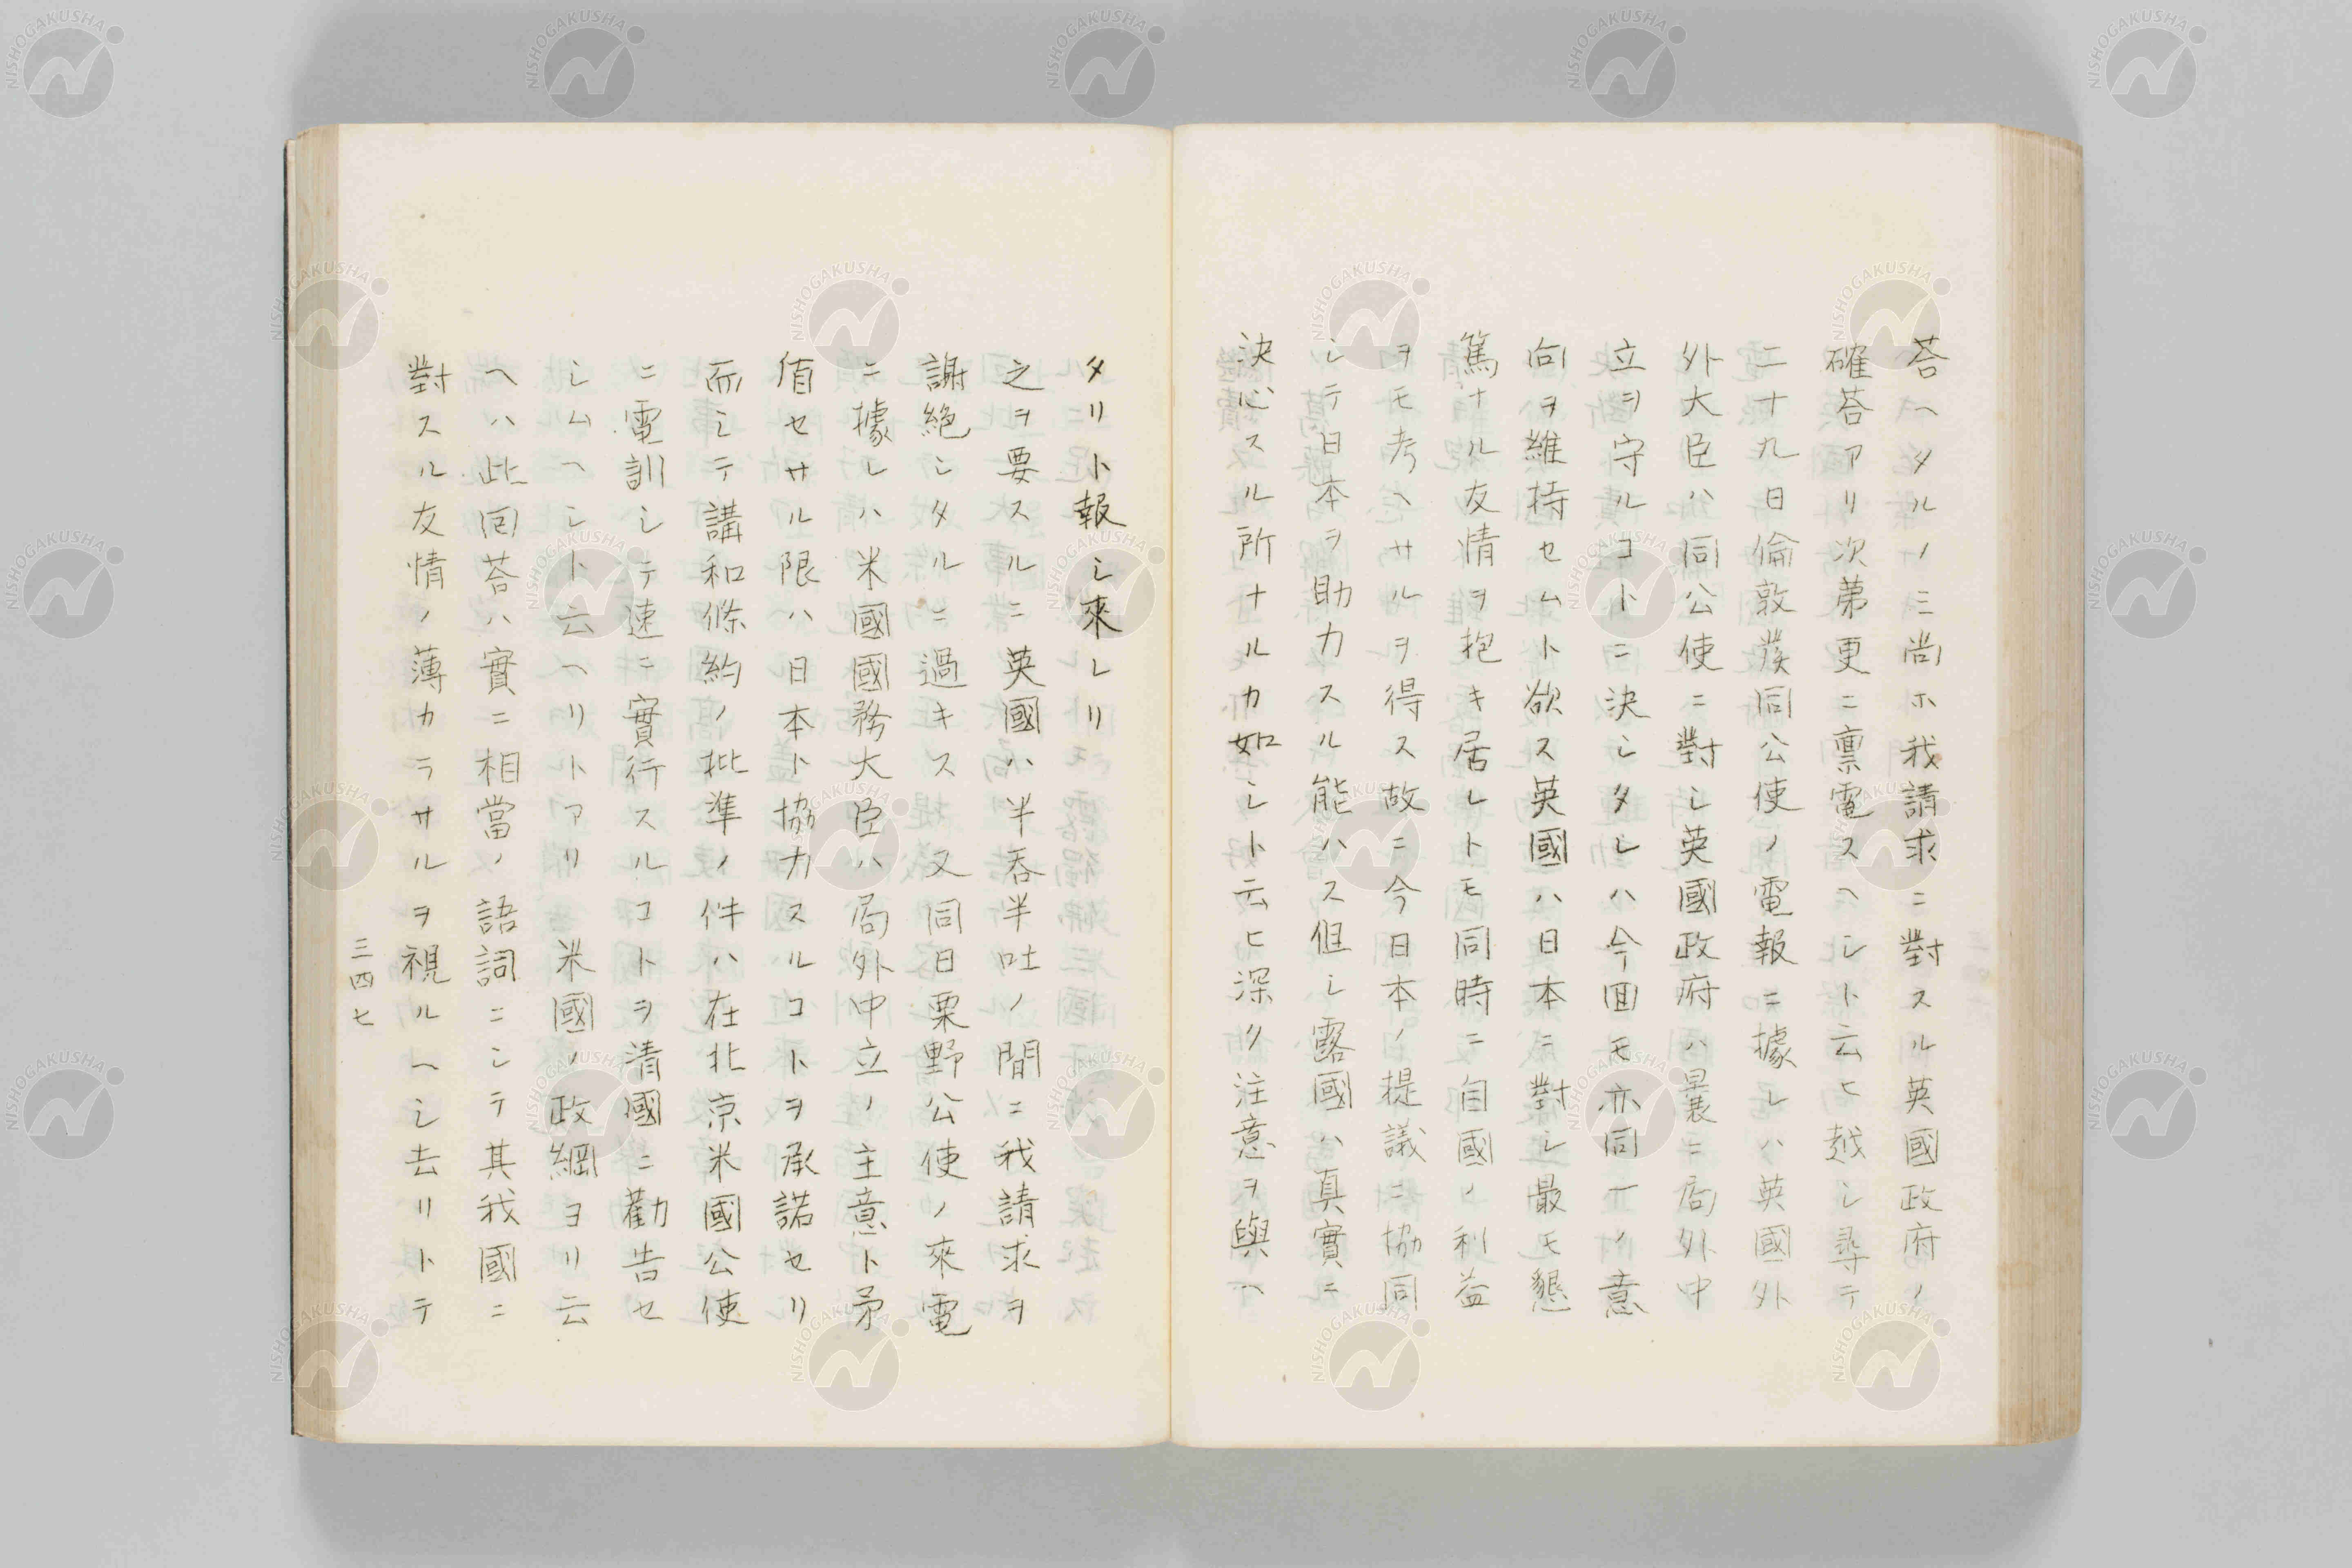 荅ヘタルノミ尚ホ我請求ニ對スル英國政府ノ
確荅アリ次第更ニ禀電スヘシト云ヒ越シ尋テ
二十九日倫敦發同公使ノ電報ニ據レハ英國外
外大臣ハ同公使ニ對シ英國政府ハ曩ニ局外中
立ヲ守ルコトニ決シタレハ今回モ亦同一ノ意
向ヲ維持セムト欲ス英國ハ日本ニ對シ最モ懇
篤ナル友情ヲ抱キ居レトモ同時ニ自國ノ利益
ヲモ考ヘサルヲ得ス故ニ今日本ノ提議ニ協同
シテ日本ヲ助力スル能ハス但シ露國ハ真實ニ
決心スル所ナルカ如シト云ヒ深ク注意ヲ與ヘ
タリト報シ來レリ
之ヲ要スルニ英國ハ半呑半吐ノ間ニ我請求ヲ
謝絶シタルニ過キス又同日栗野公使ノ來電
ニ據レハ米國國務大臣ハ局外中立ノ主意ト矛
盾セサル限ハ日本ト協力スルコトヲ承諾セリ
而シテ講和條約ノ批準ノ件ハ在北京米國公使
ニ電訓シテ速ニ實行スルコトヲ清國ニ勸告セ
シムヘシト云ヘリトアリ 米國ノ政綱ヨリ云
ヘハ此回荅ハ實ニ相當ノ語詞ニシテ其我國ニ
對スル友情ノ薄カラサルヲ視ルヘシ去リトテ
三四七
NISHOGAKUSHA